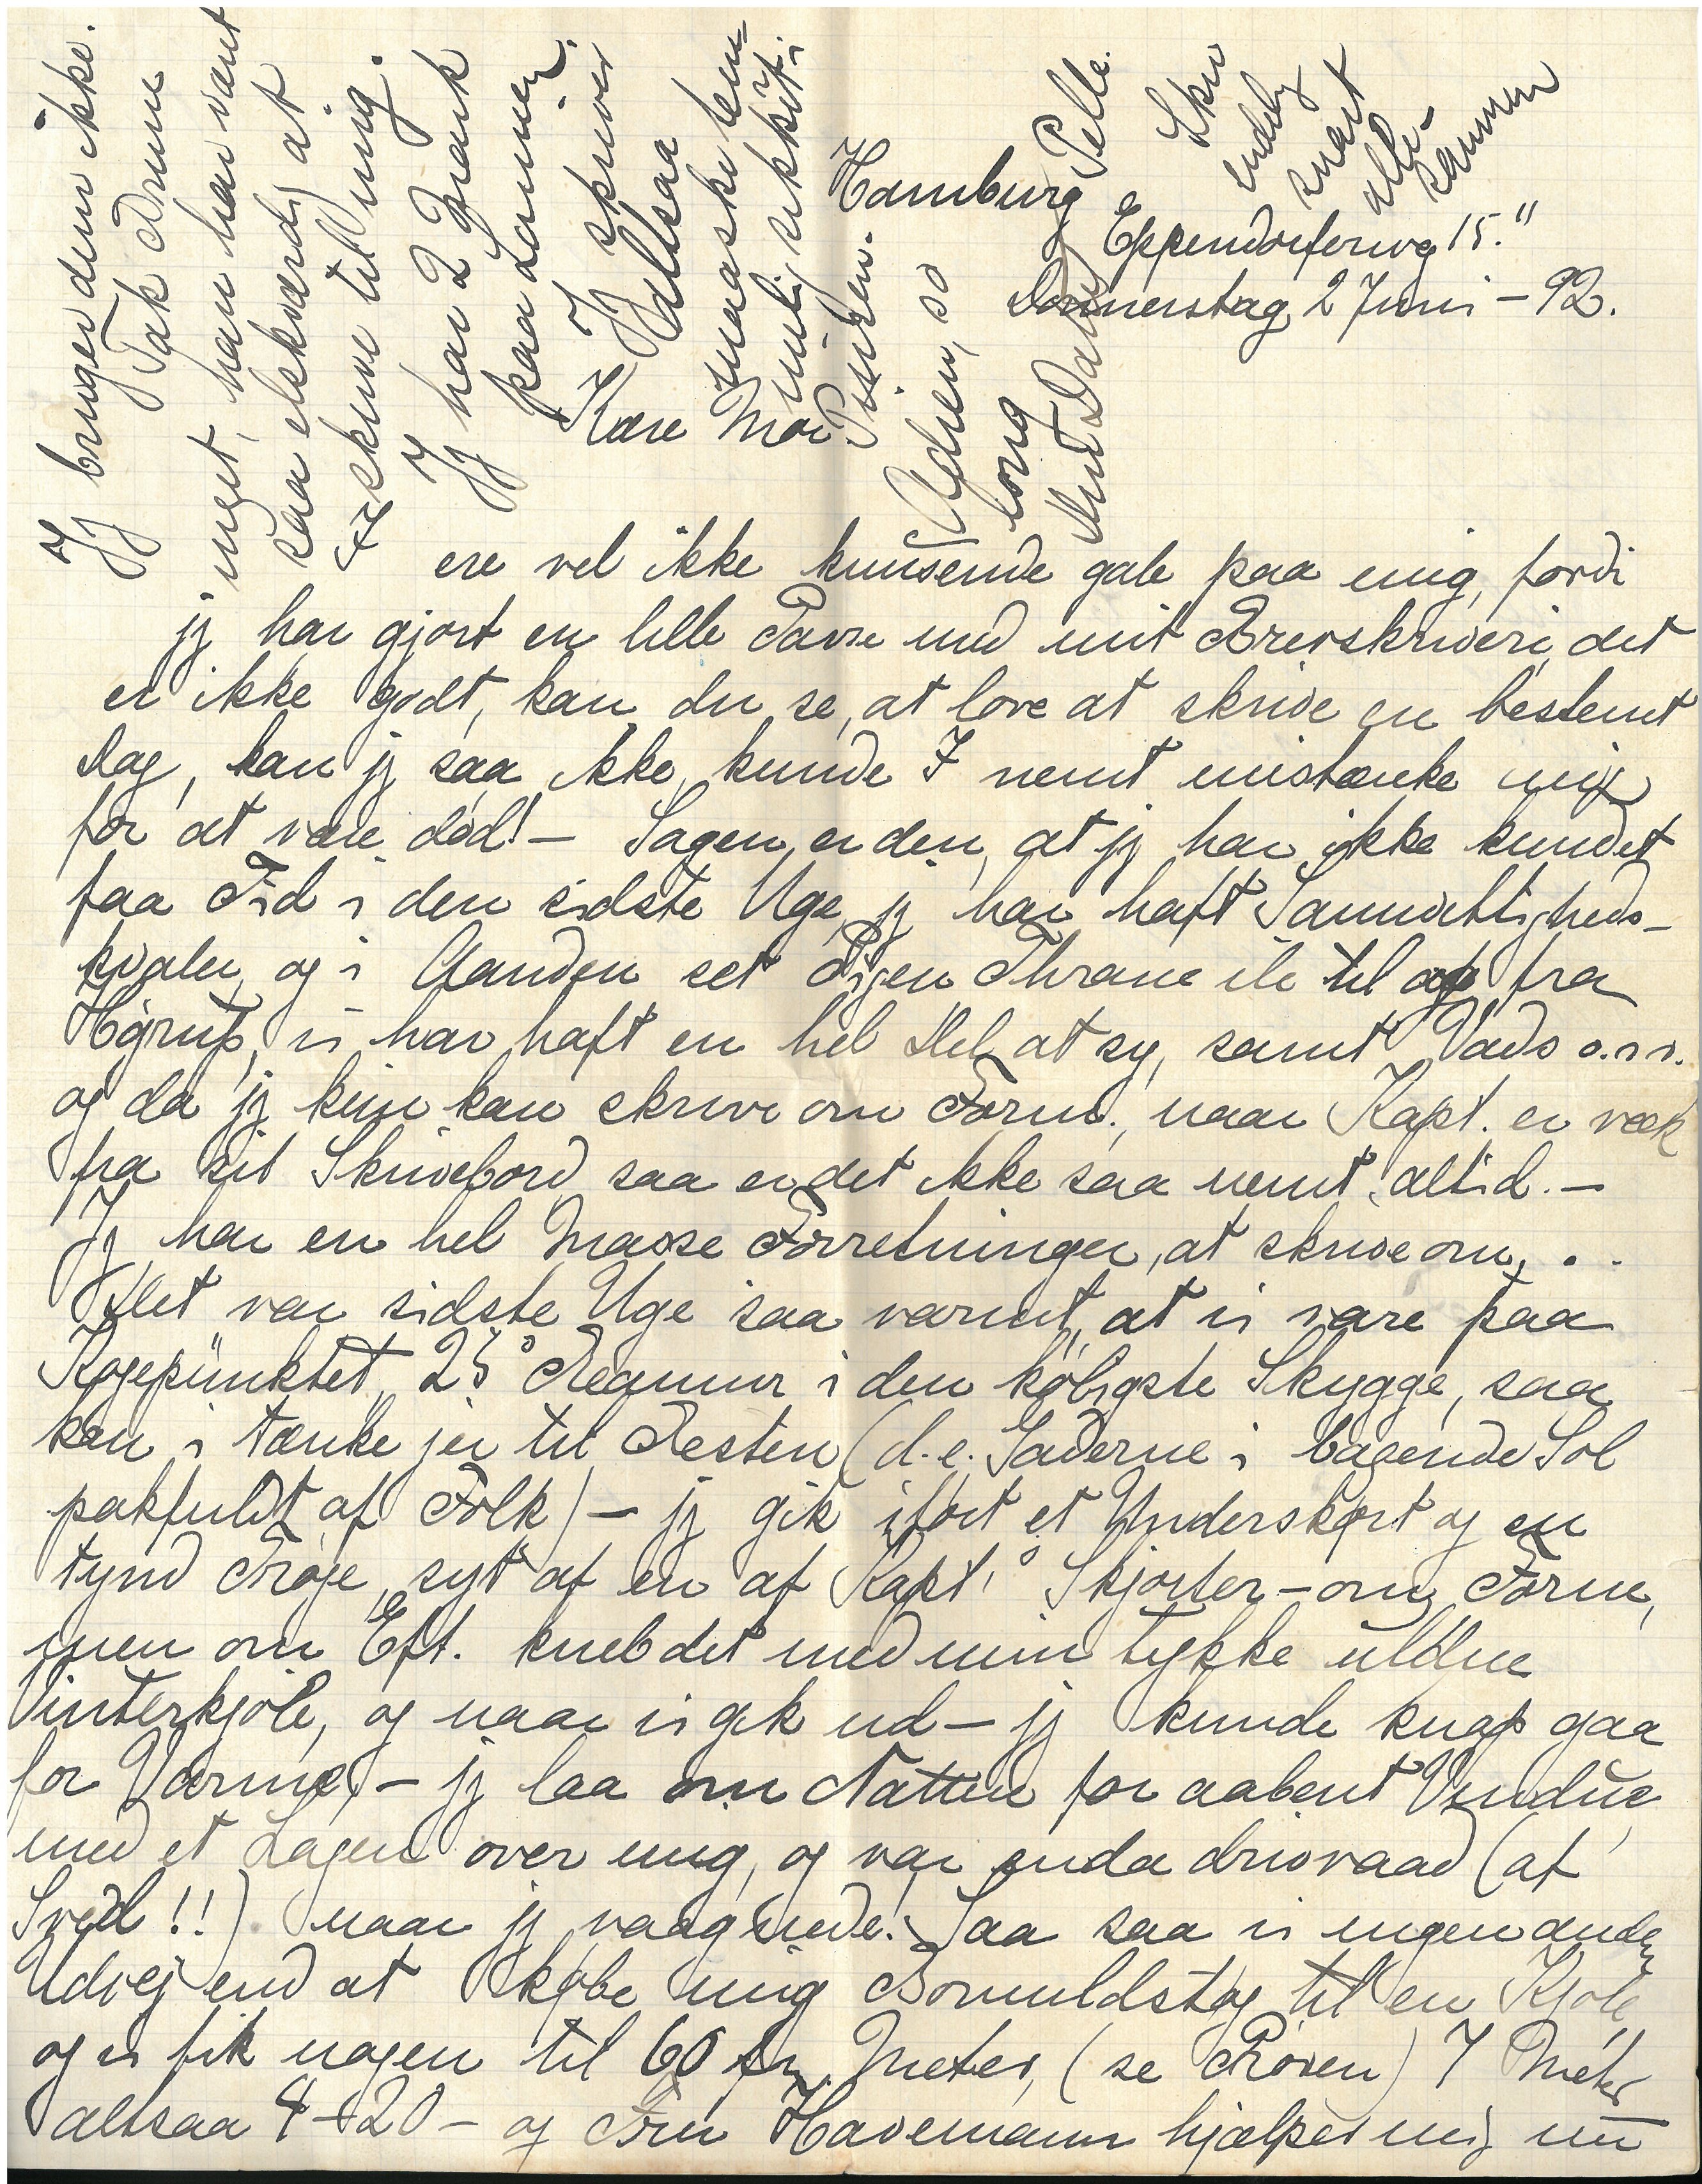 Hamburg
Eppendorferweg 15."
Donnerstag 2 Juni - 92.
Kære Mor.
I ere vel ikke knusende gale paa mig, fordi
jg har gjort en lille Pavse med mit Brevskriveri, det
er ikke godt, kan du se, at love at skrive en bestemt
Dag, kan jg saa ikke, kunde I nemt mistænke mig
for at være død! - Sagen er den, at jg har ikke kundet
faa Tid i den sidste Uge, jg har haft Samvittigheds-
kvaler, og i Aanden set Pigen Thrane ile til og fra
Højrup, vi har haft en hel Del at sy, samt Vads o.s.v.
og da jg kun kan skrive om Form., naar Kapt. er væk
fra sit Skrivebord saa er det ikke saa nemt altid. -
Jg har en hel Masse Forretninger, at skrive om, . .
Det var sidste Uge saa varmt, at vi vare paa
Kogepunktet, 25° Reamur i den køligste Skygge, saa
kan i tænke jer til Resten (d.e. Gaderne i bagende Sol
pakfuldt af Folk) - jg gik iført et Underskørt og en
tynd Trøje, syt af en af Kapt's Skjorter - om Form,
men om Eft. kneb det med min tykke uldne
Vinterkjole, og naar vi gik ud - jg kunde knap gaa
for Varme, - jg laa om Natten for aabent Vindue
med et Lagen over mig, og var enda drivvaad (af
Sved!!) naar jg vaagnede. Saa saa vi ingen anden
Udvej end at købe mig Bomuldstøj til en Kjole
og vi fik nogen til 60 Meter, (se Prøven) 7 Meter
altsaa 4-20 - og Fru Havemann hjælper mig nu
Jg bruger dem ikke.
Tak Drune
meget, han har vært
saa elskværdig at
skrive til mig.
Jg har 2 Mark
paa Lommen.
Jg skriver
Altsaa
maaske tem-
melig sikkert i
Pinsen.
Adieu, so
long
Mut Dat
Pelle.
Skriv
endelig
snart
alle-
sammen